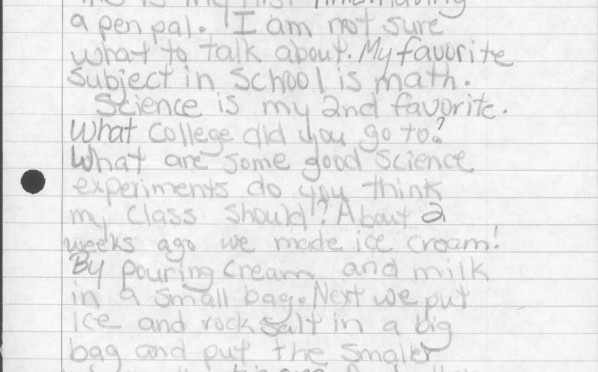 is my first time having
a pen pal. I am not sure
what to talk about. My favorite
Subject in School is math.
Science is my 2nd favorite.
What College did you go to?
What are some good Science
experiments do you think
my Class Should? About 2
weeks ago we made ice cream!
By pouring cream and milk
in a small bag. Next we put
Ice and rock salt in a big
bag and put the smaller